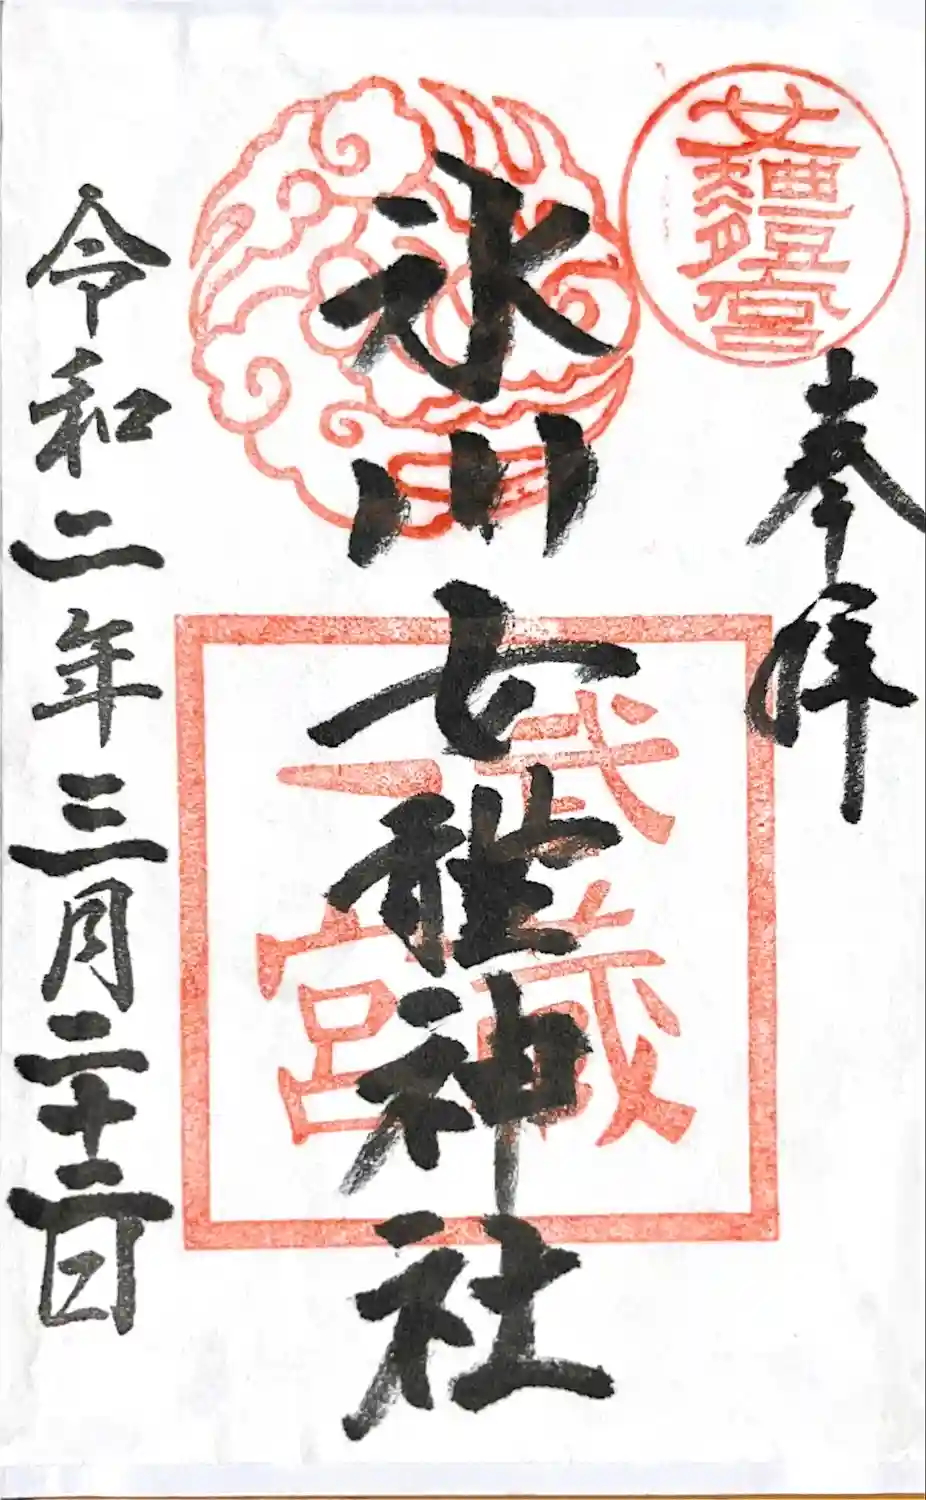 奉拝
武蔵
一宮
氷川女體神社
令和二年三月二十三日